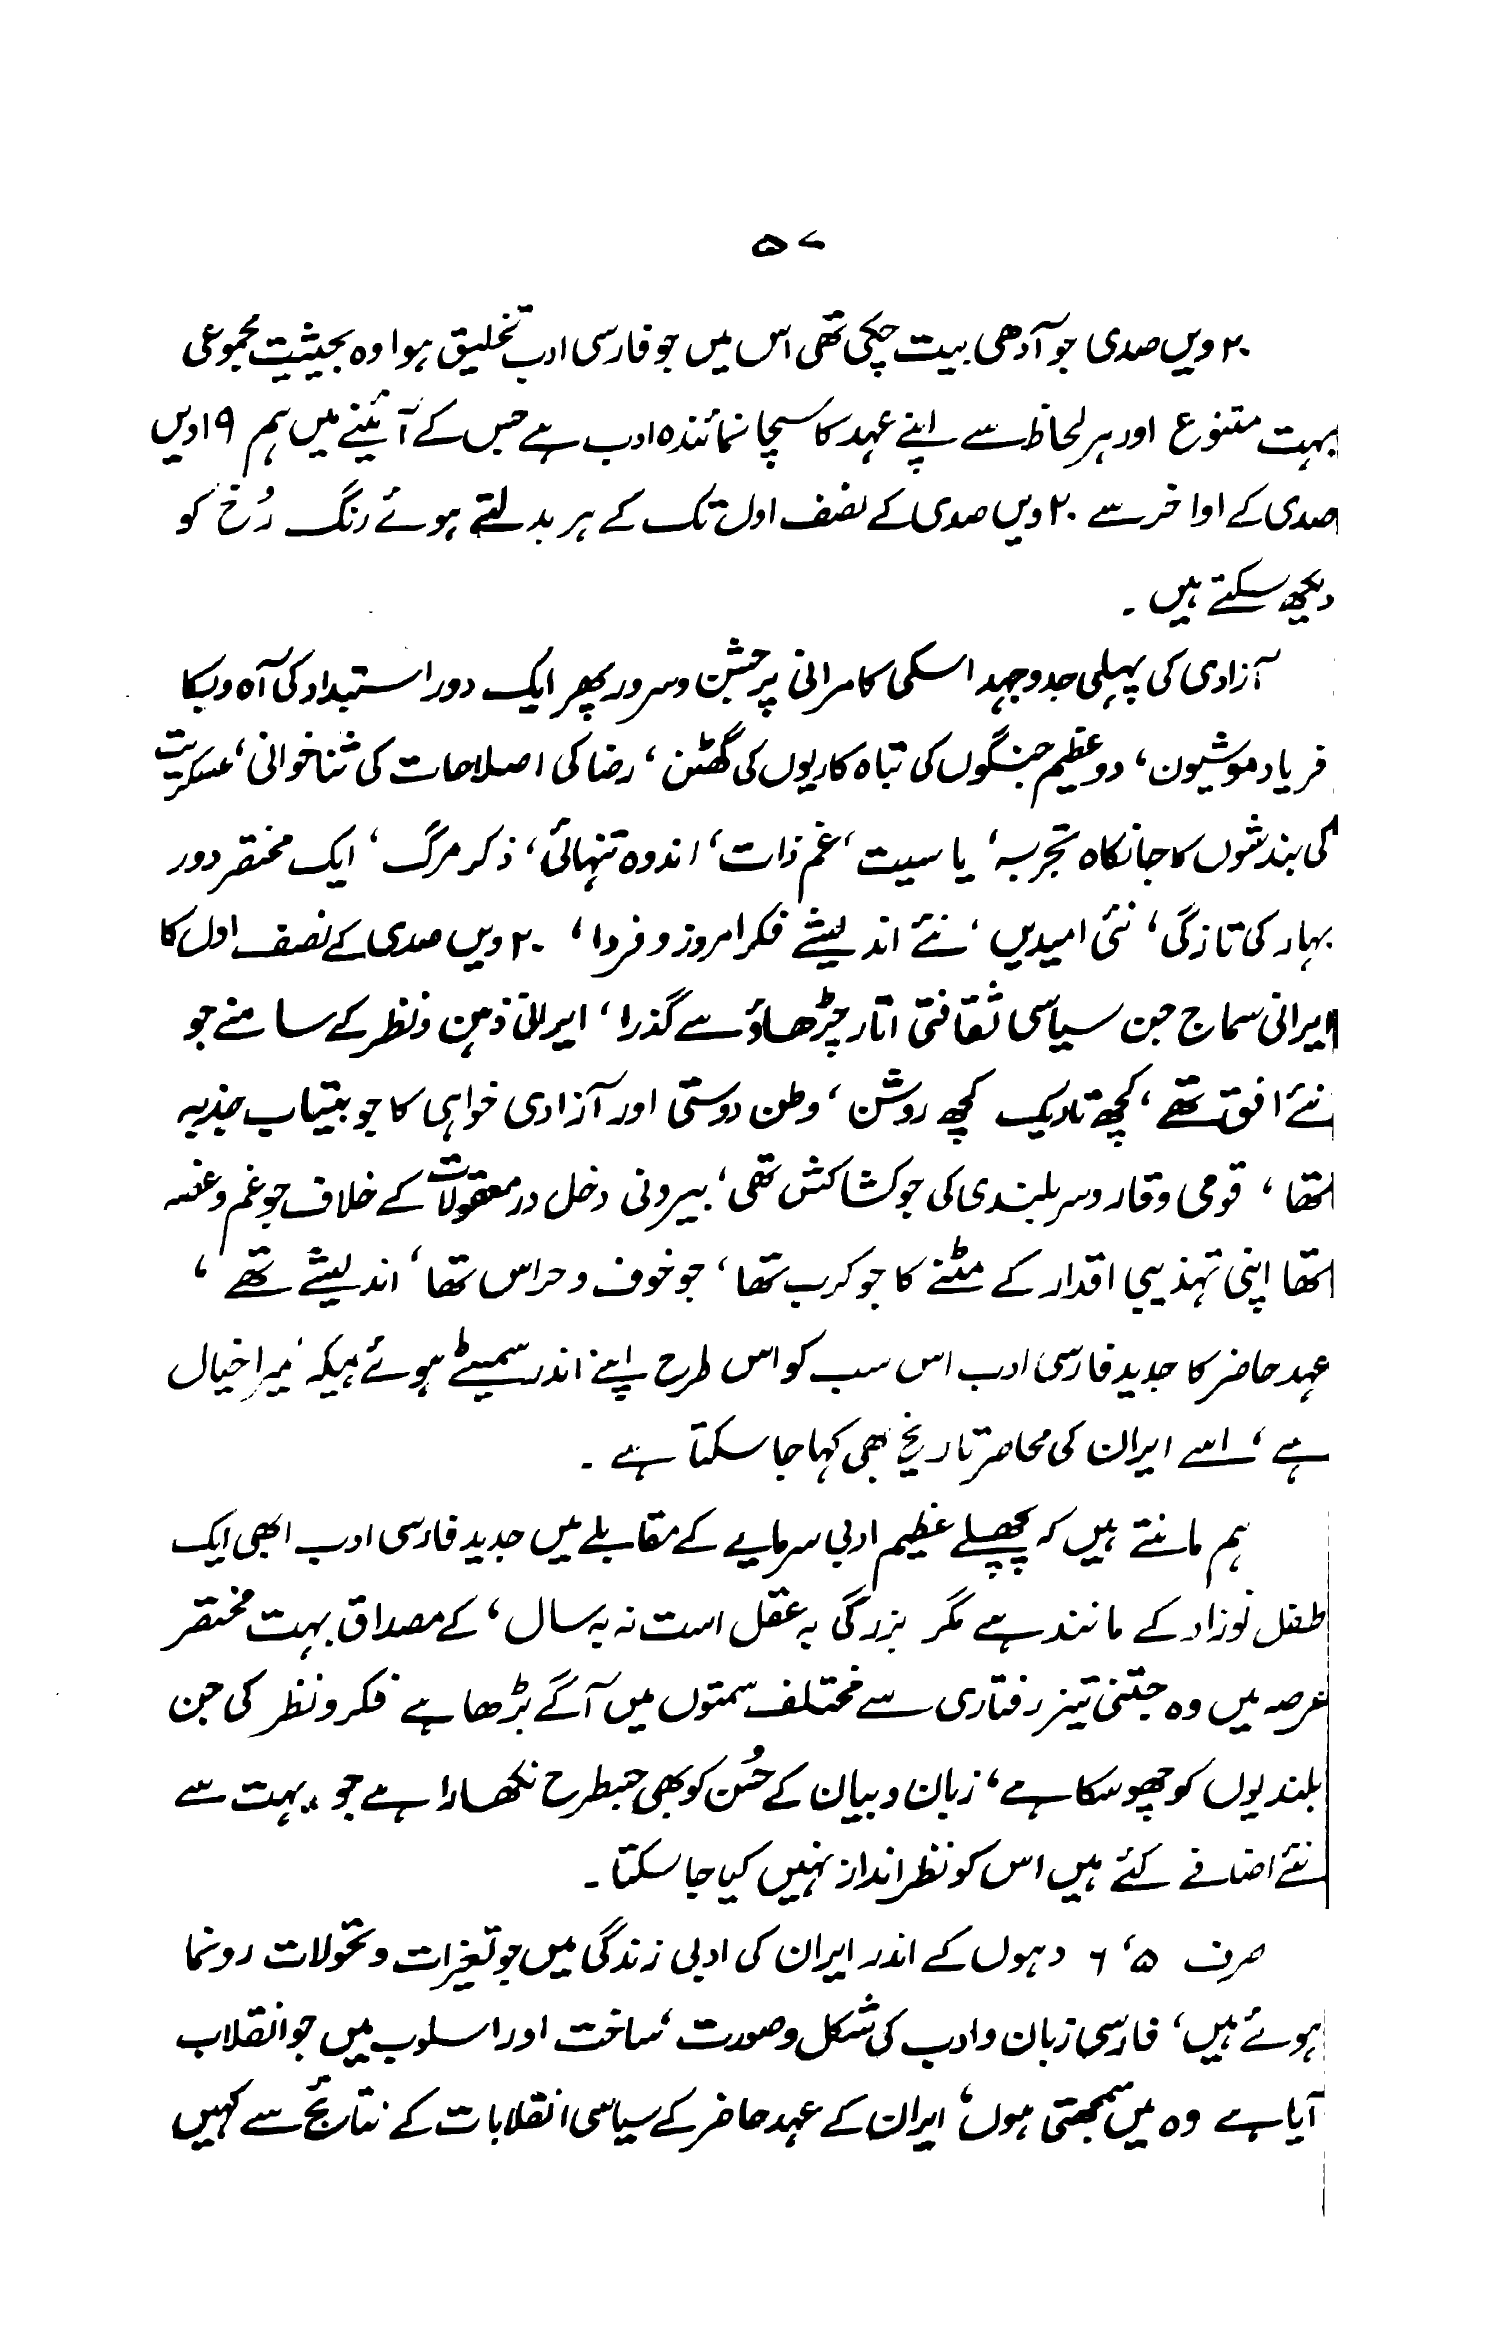 ۵۷
۲۰ ویں صدی جو آدھی بیت چکی تھی اس میں جو فارسی ادب تخلیق ہوا وہ بحیثیت مجموعی
بہت متنوع اور ہر لحاظ سے اپنے عہد کا سچا نمائندہ ادب ہے جس کے آئینے میں ہم ۱۹ ویں
صدی کے اواخر سے ۲۰ ویں صدی کے نصف اول تک کے ہر بدلتے ہوئے رنگ رُخ کو
دیکھ سکتے ہیں ۔
آزادی کی پہلی جدوجہد اسکی کامرانی پر جشن و سرور پھر ایک دور استبداد کی آہ و بکا
فریاد موشیون، دو عظیم جنگوں کی تباہ کاریوں کی گھٹن، رضا کی اصلاحات کی ثنا خوانی، عسکریت
کی بندشوں کا جانکاہ تجربہ، یاسیت، غم ذات، اندوہ تنہائی، ذکر مرگ، ایک مختصر دور
بہار کی تازگی، نئی امیدیں، نئے اندیشے فکر امروز و فردا، ۲۰ ویں صدی کے نصف اول کا
ایرانی سماج جن سیاسی ثقافتی اتار چڑھاؤ سے گذرا، ایرانی ذہن و نظر کے سامنے جو
نئے افق تھے، کچھ تاریک کچھ روشن، وطن دوستی اور آزادی خواہی کا جو بیتاب جذبہ
تھا، قومی وقار و سربلندی کی جو کشاکش تھی، بیرونی دخل در معقولات کے خلاف جو غم و غصہ
تھا اپنی تہذیبی اقدار کے مٹنے کا جو کرب تھا، جو خوف و حراس تھا، اندیشے تھے،
عہد حاضر کا جدید فارسی ادب اس سب کو اس طرح اپنے اندر سمیٹے ہوئے ہیکہ میرا خیال
ہے، اسے ایران کی محاصر تاریخ بھی کہا جا سکتا ہے ۔
ہم مانتے ہیں کہ پچھلے عظیم ادبی سرمایے کے مقابلے میں جدید فارسی ادب ابھی ایک
طفل نوزاد کے مانند ہے مگر بزرگی بہ عقل است نہ بہ سال، کے مصداق بہت مختصر
عرصہ میں وہ جتنی تیز رفتاری سے مختلف سمتوں میں آگے بڑھا ہے فکر و نظر کی جن
بلندیوں کو چھو سکا ہے، زبان و بیان کے حُسن کو بھی جسطرح نکھارا ہے جو بہت سے
نئے اضافے کئے ہیں اس کو نظر انداز نہیں کیا جا سکتا ۔
صرف ۵، ۶ دہوں کے اندر ایران کی ادبی زندگی میں جو تغیرات و تحولات رونما
ہوئے ہیں، فارسی زبان و ادب کی شکل و صورت، ساخت اور اسلوب میں جو انقلاب
آیا ہے وہ میں سمجھتی ہوں، ایران کے عہد حاضر کے سیاسی انقلابات کے نتائج سے کہیں